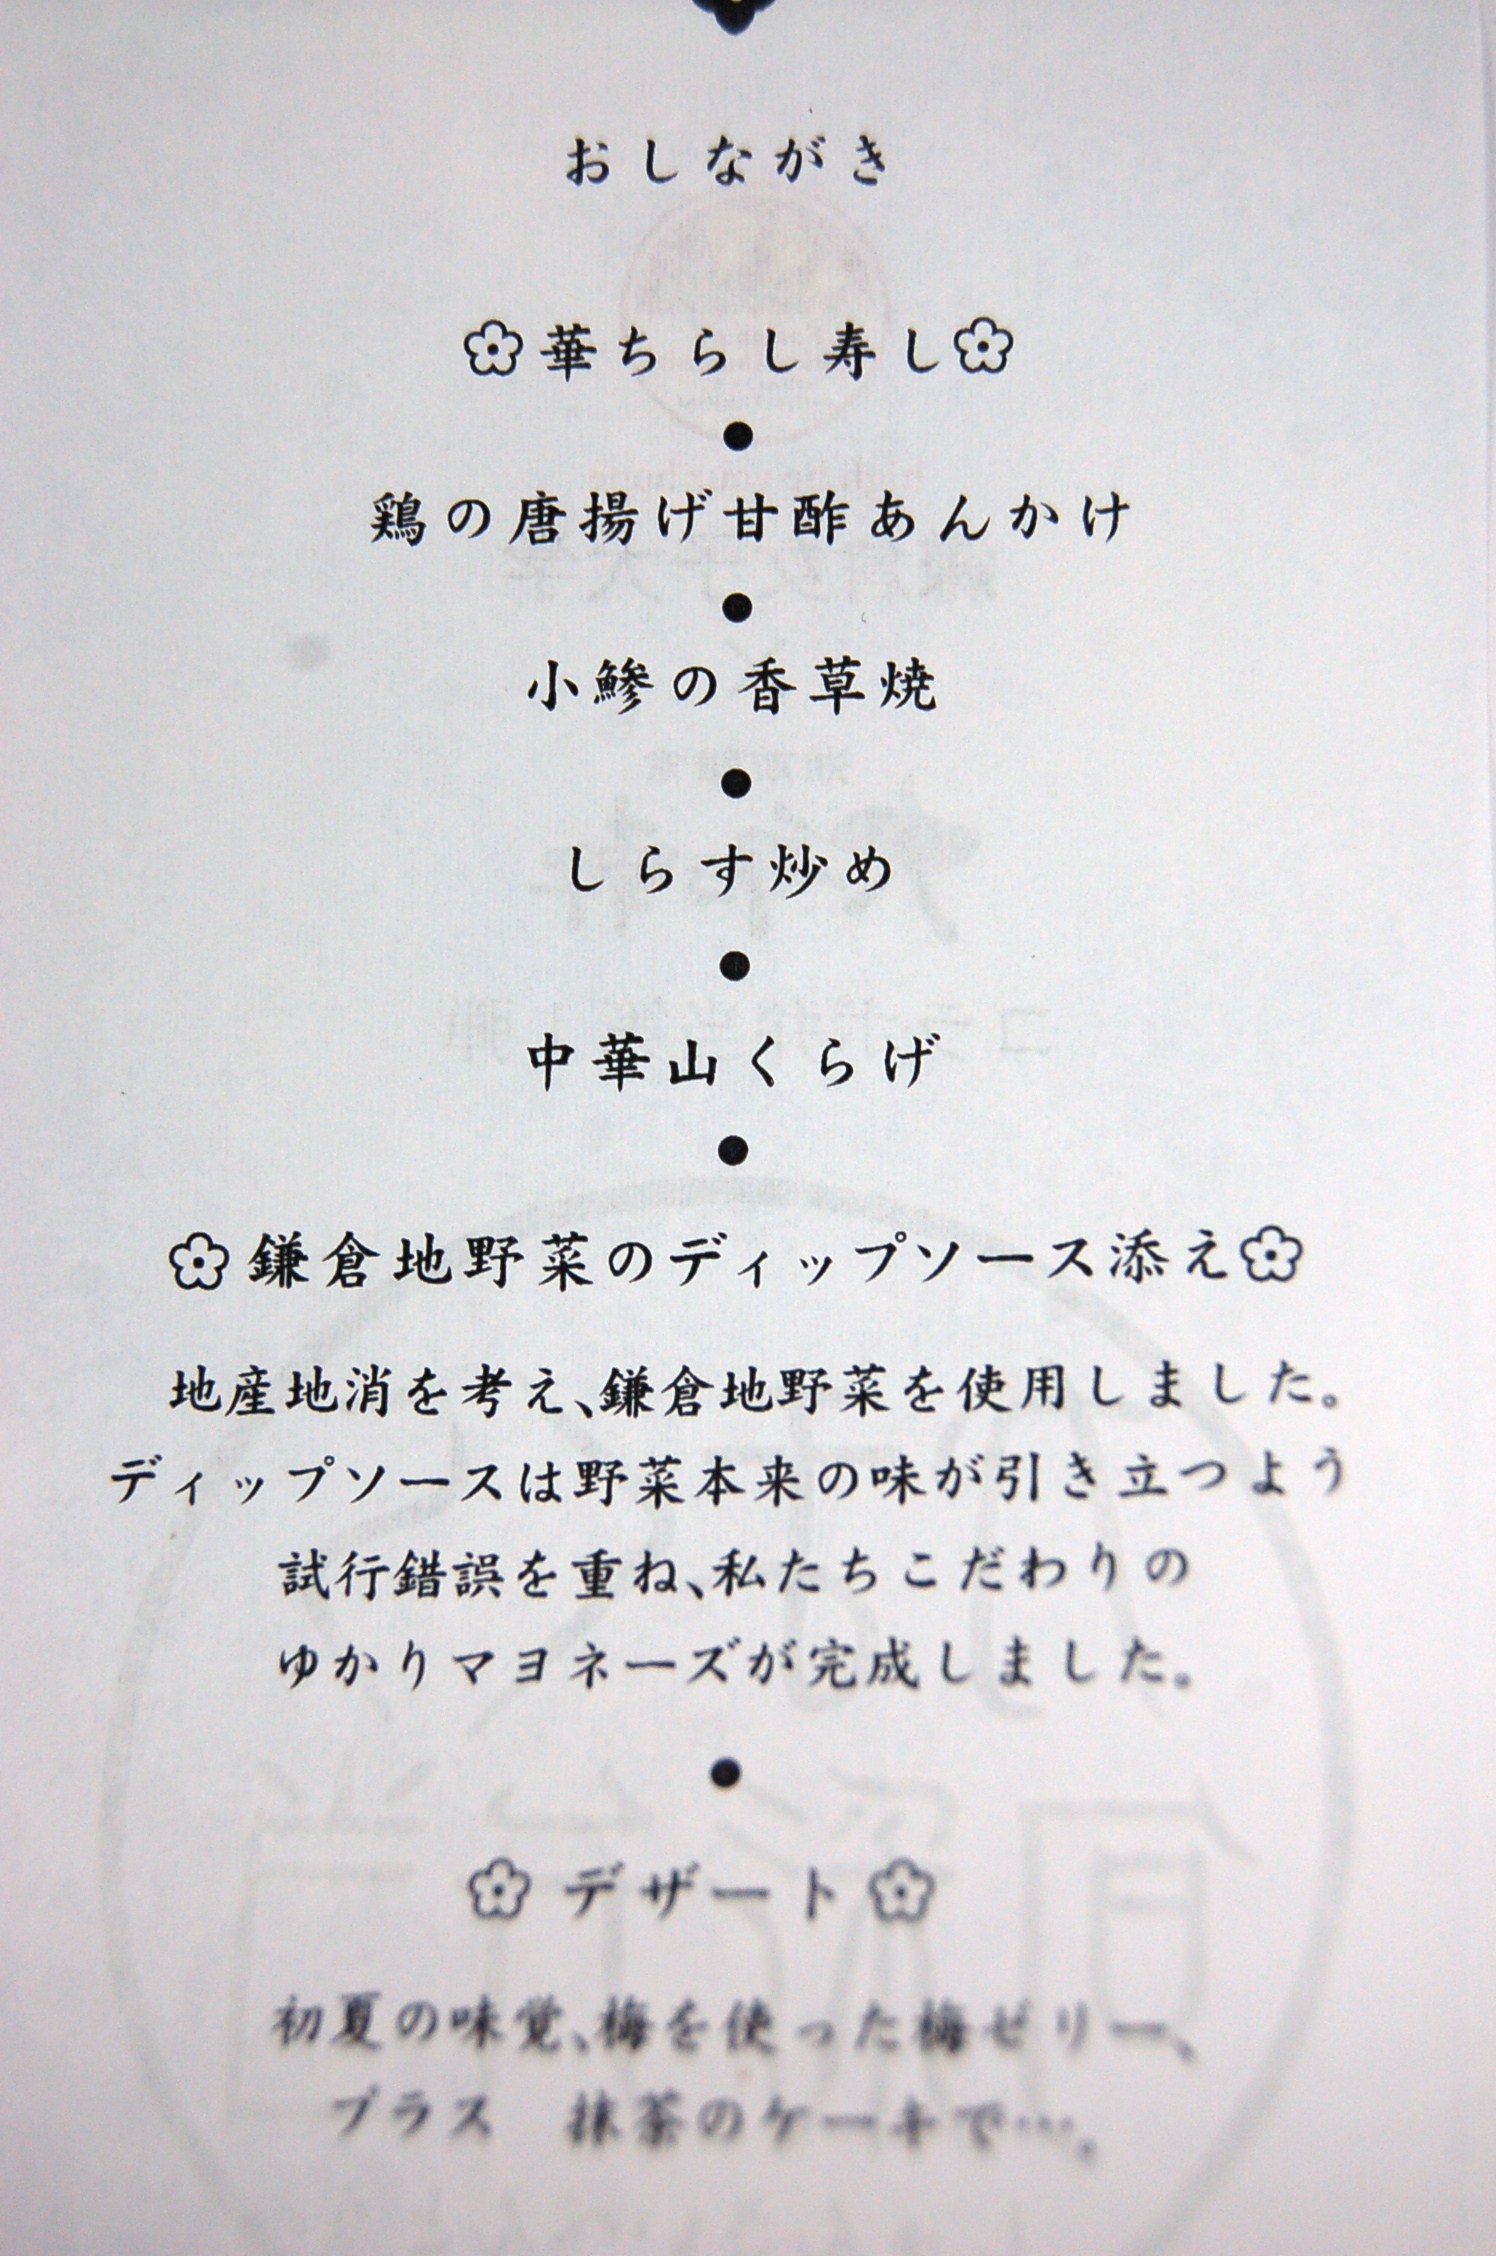 おしながき
華ちらし寿し
鶏の唐揚げ甘酢あんかけ
小鯵の香草焼
しらす炒め
中華山くらげ
鎌倉地野菜のディップソース添え
地産地消を考え、鎌倉地野菜を使用しました。
ディップソースは野菜本来の味が引き立つよう
試行錯誤を重ね、私たちこだわりの
ゆかりマヨネーズが完成しました。
デザート
初夏の味覚、梅を使った梅ゼリー、
プラス　抹茶のケーキで…。